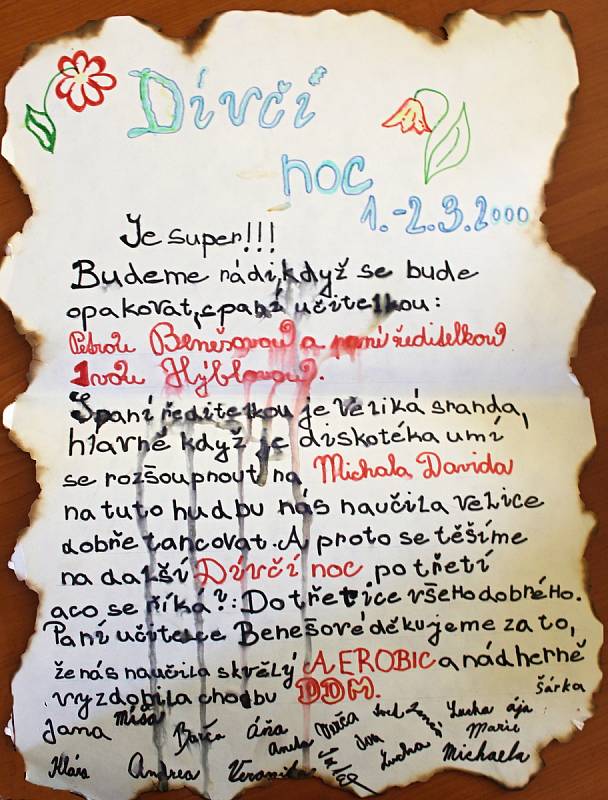 Dívčí
noc
1.-2.3.2000
Je super!!!
Budeme rádi, když se bude
opakovat, s paní učitelkou:
Petrou Benešovou a paní ředitelkou
Ivou Hýblovou.
S paní ředitelkou je veliká sranda,
hlavně když je diskotéka umí
se rozšoupnout na Michala Davida
na tuto hudbu nás naučila velice
dobře tancovat. A proto se těšíme
na další Dívčí noc potřetí
a co se říká?: Do třetice všeho dobrého.
Paní učitelce Benešové děkujeme za to,
že nás naučila skvělý AEROBIC a nádherně
vyzdobila chodbu DDM. Šárka
Jana Míša Barča Áňa Aneta Lucka ája
Klára Andrea Veronika Lucka Marie
Michaela